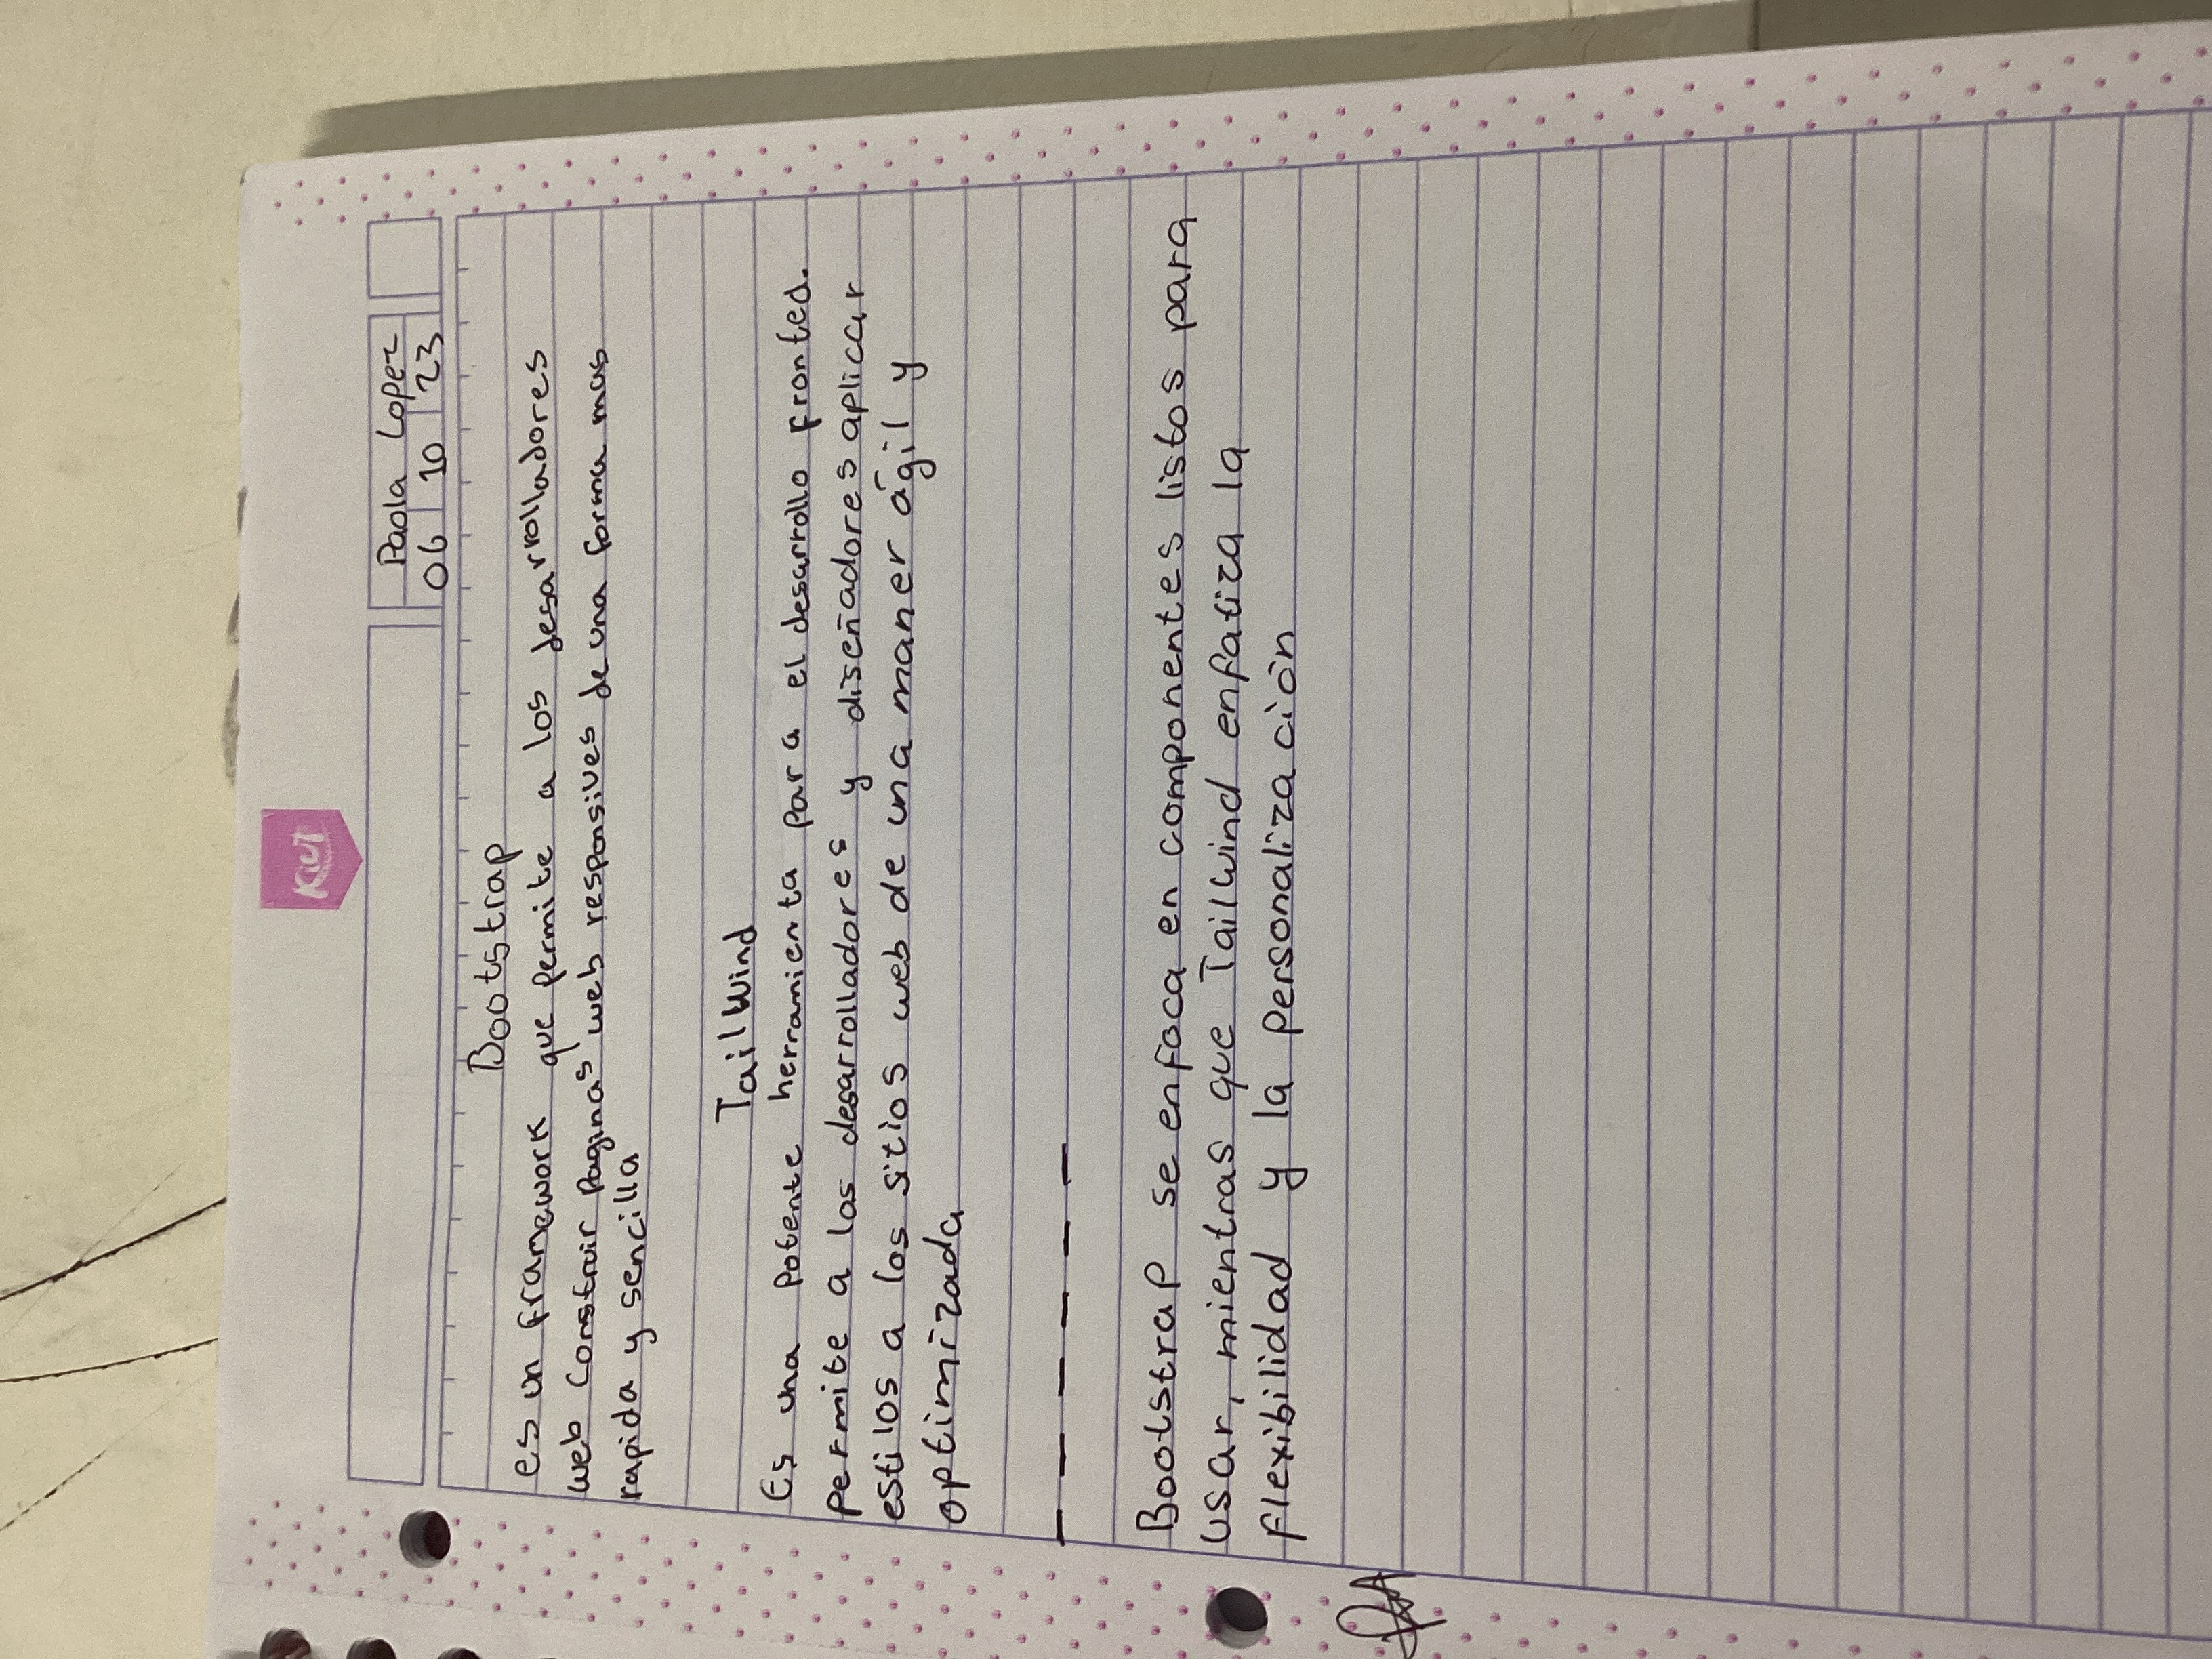 Kut
Paola Lopez
06 10 23
Bootstrap
es un framework que permite a los desarrolladores
web Construir Paginas web responsives de una forma mas
rapida y sencilla
TailWind
Es una potente herramienta para el desarrollo fronted.
permite a las desarrolladores y diseñadores aplicar
estilos a los sitios web de una maner ágil y
optimizada
Bootstrap se enfoca en componentes listos para
usar, mientras que TailWind enfatiza la
flexibilidad y la personalización